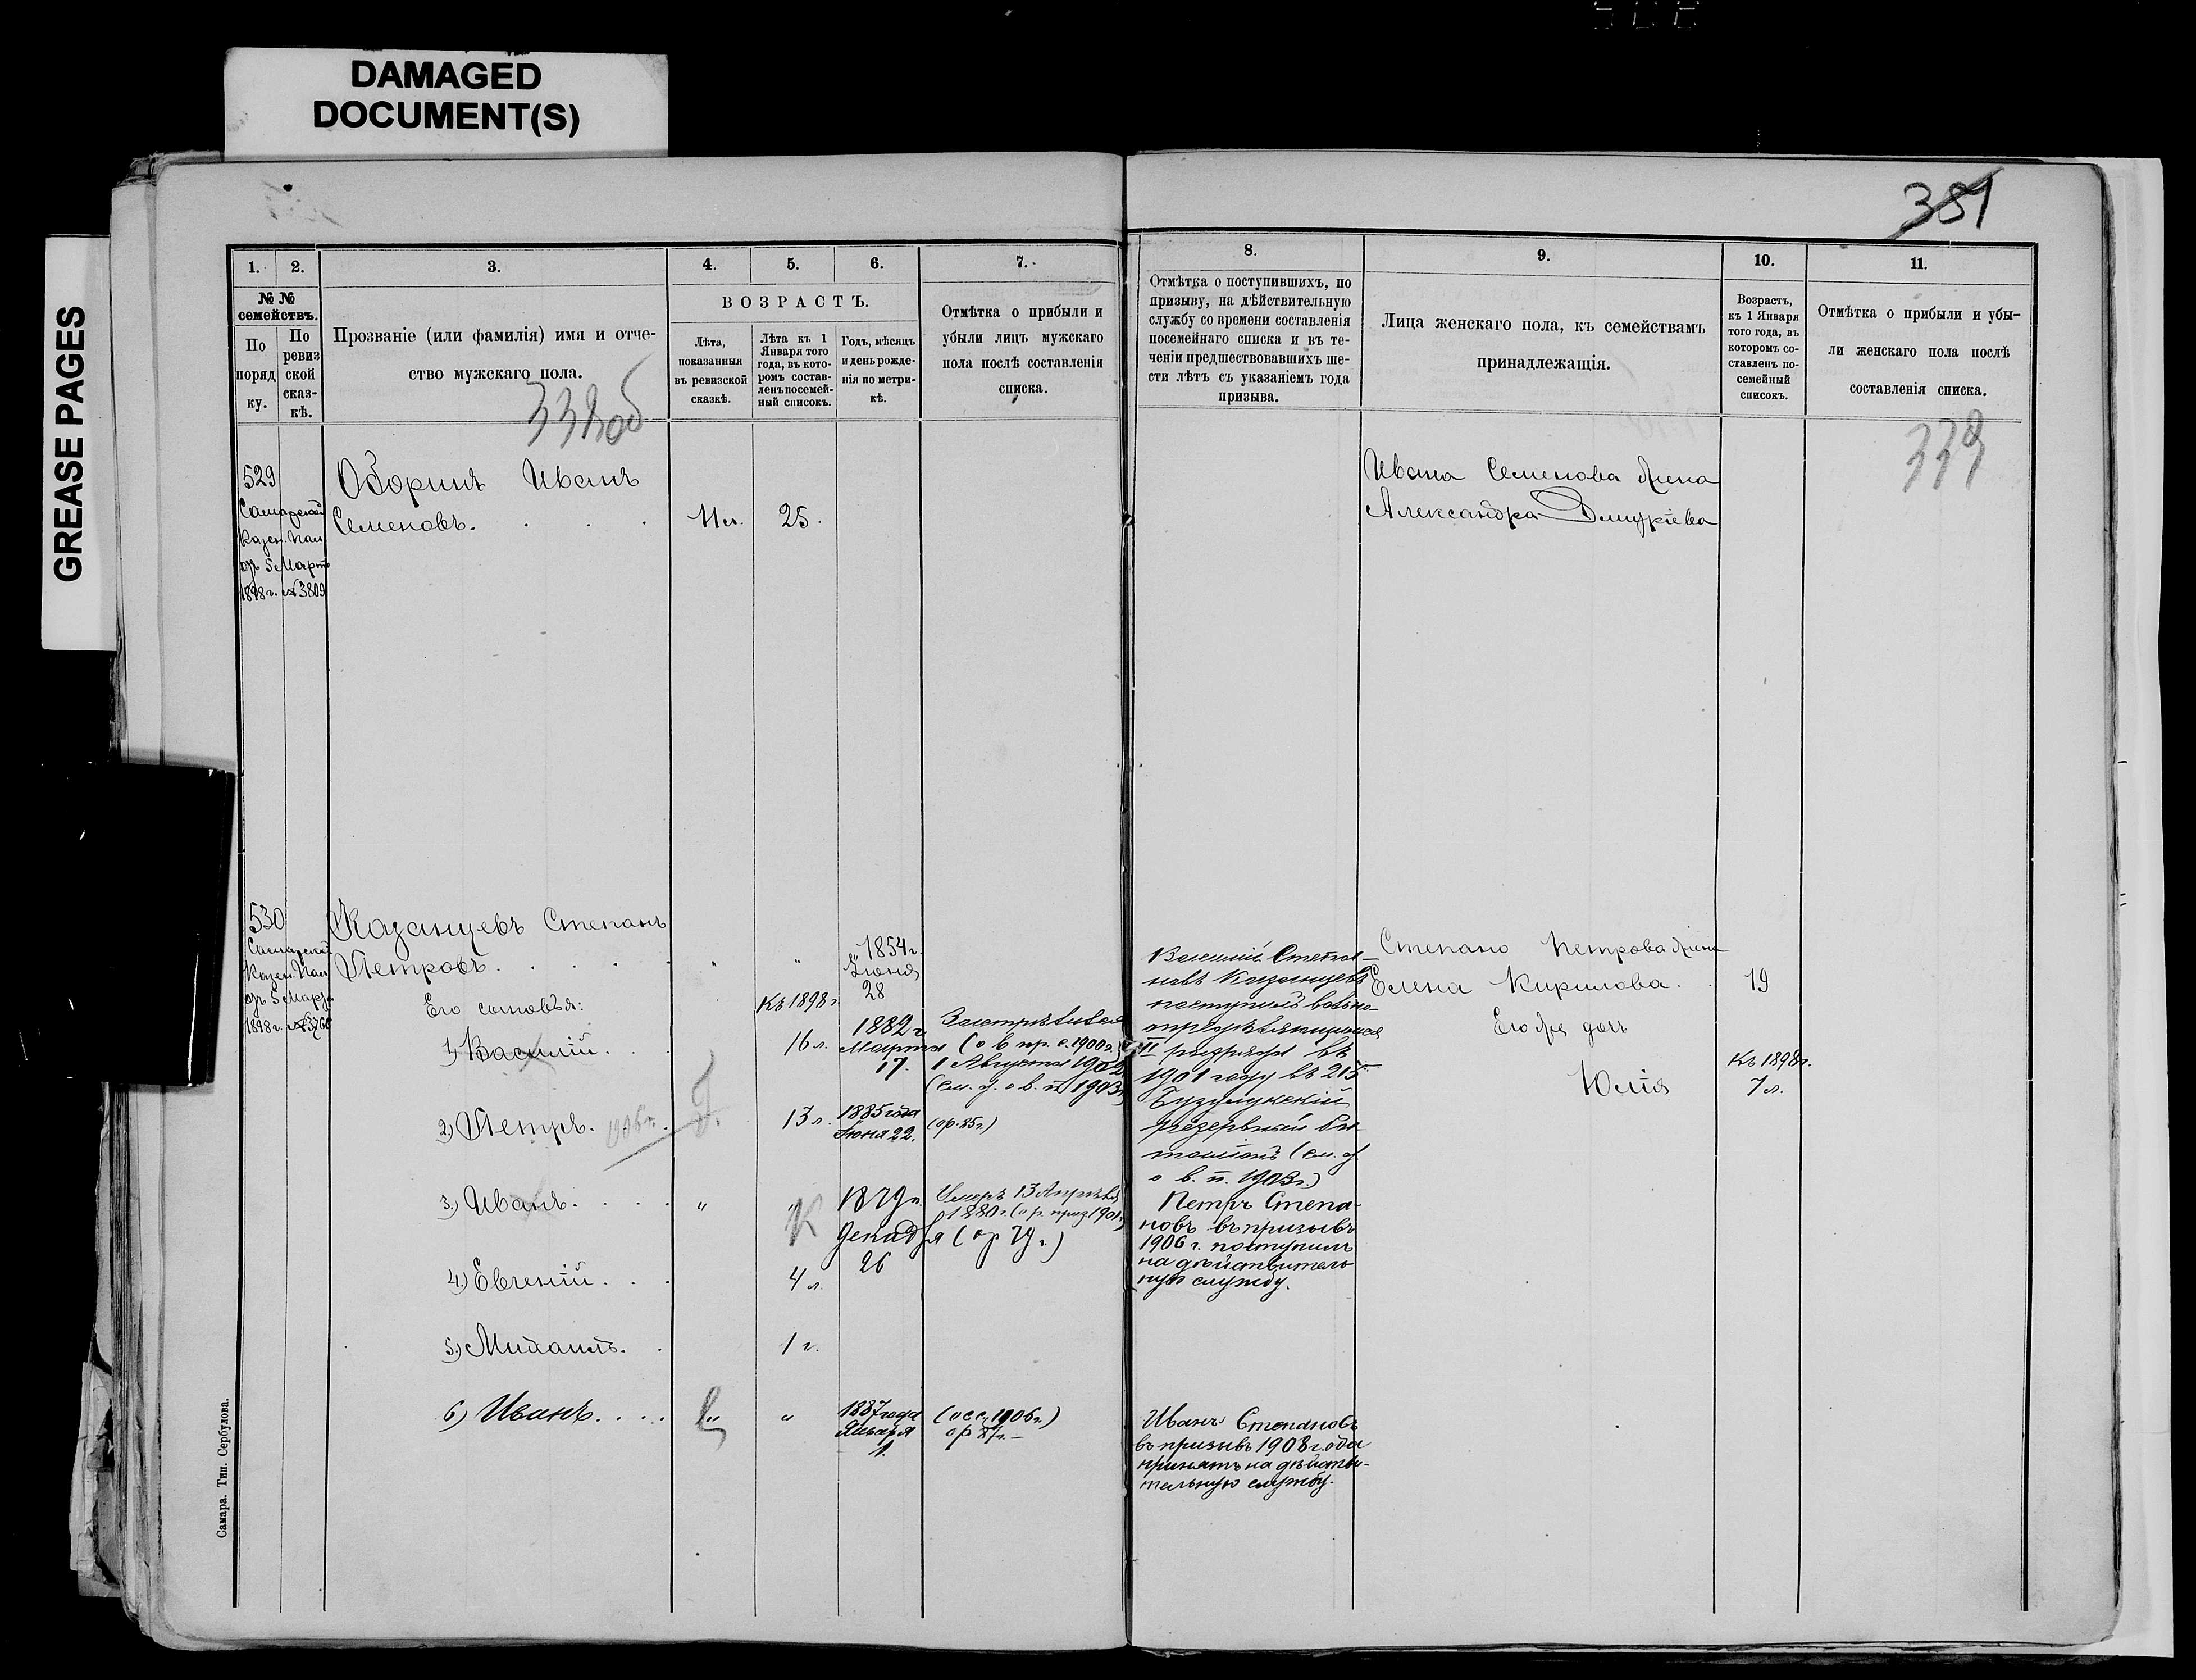 DAMAGED
DOCUMENT(S)
GREASE PAGES
381
1.
2.
3.
4.
5.
6.
7.
№ №
семействъ.
По
поряд
ку.
По
ревиз
ской
сказ-
кѣ.
Прозваніе (или фамилія) имя и отче-
ство мужскаго пола.
ВОЗРАСТЪ.
Лѣта,
показанныя
въ ревизской
сказкѣ.
Лѣта къ 1
Января того
года, въ кото-
ромъ состав-
ленъ посемей-
ный списокъ.
Годъ, мѣсяцъ
и день рожде-
нія по метри-
кѣ.
Отмѣтка о прибыли и
убыли лицъ мужскаго
пола послѣ составленія
списка.
338об
529
Самарской
Казен. Пал.
отъ 5 Марта
1898 г. № 3809
Оборинъ Иванъ
Семеновъ.
11 л.
25.
530
Самарской
Казен. Пал.
отъ 5 Марта
1898 г.
Казанцевъ Степанъ
Петровъ.
"
"
1854 г.
Іюня
28
Его сыновья:
Къ 1898 г.
1) Василій.
16 л.
1882 г.
Марта
17.
Застрѣлился
(о в. пр. с. 1900 г.)
1 Августа 1902
(см. д. о в. п. 1903 г.)
2) Петръ.
1906 г.
13 л.
1885 года
Іюня 22.
(ор. 85 г.)
3) Иванъ.
"
"
1879 г.
Декабря
26
Умеръ 13 Апрѣля
1880 г. (о р. приз 1901 г.)
(ор 79 г.)
4) Евгеній.
4 л.
5) Михаилъ.
1 г.
6) Иванъ.
"
"
1887 года
Января
1.
1906 г.)
ор 87 г.
Самара. Тип. Сербулова.
8.
9.
10.
11.
Отмѣтка о поступившихъ, по
призыву, на дѣйствительную
службу со времени составленія
посемейнаго списка и въ те-
ченіи предшествовавшихъ ше-
сти лѣтъ съ указаніемъ года
призыва.
Лица женскаго пола, къ семействамъ
принадлежащія.
Возрастъ,
къ 1 Января
того года, въ
которомъ со-
ставленъ по-
семейный
списокъ.
Отмѣтка о прибыли и убы-
ли женскаго пола послѣ
составленія списка.
339
Ивана Семенова жена
Александра Дмитріева
Василій Степа-
новъ Казанцевъ
поступилъ вольно-
опредѣляющимся
II разряда въ
1901 году въ 215
Бузулукскій
резервный ба-
таліонъ (см. д.
о в. п. 1903 г.)
Петръ Степа-
новъ въ призывъ
1906 г. поступилъ
на дѣйствитель-
ную службу.
Иванъ Степановъ
въ призывъ 1908 года
принятъ на дѣйстви-
тельную службу.
Степана Петрова жена
Елена Кирилова.
19
Его же дочь
Юлія
Къ 1898 г.
7 л.